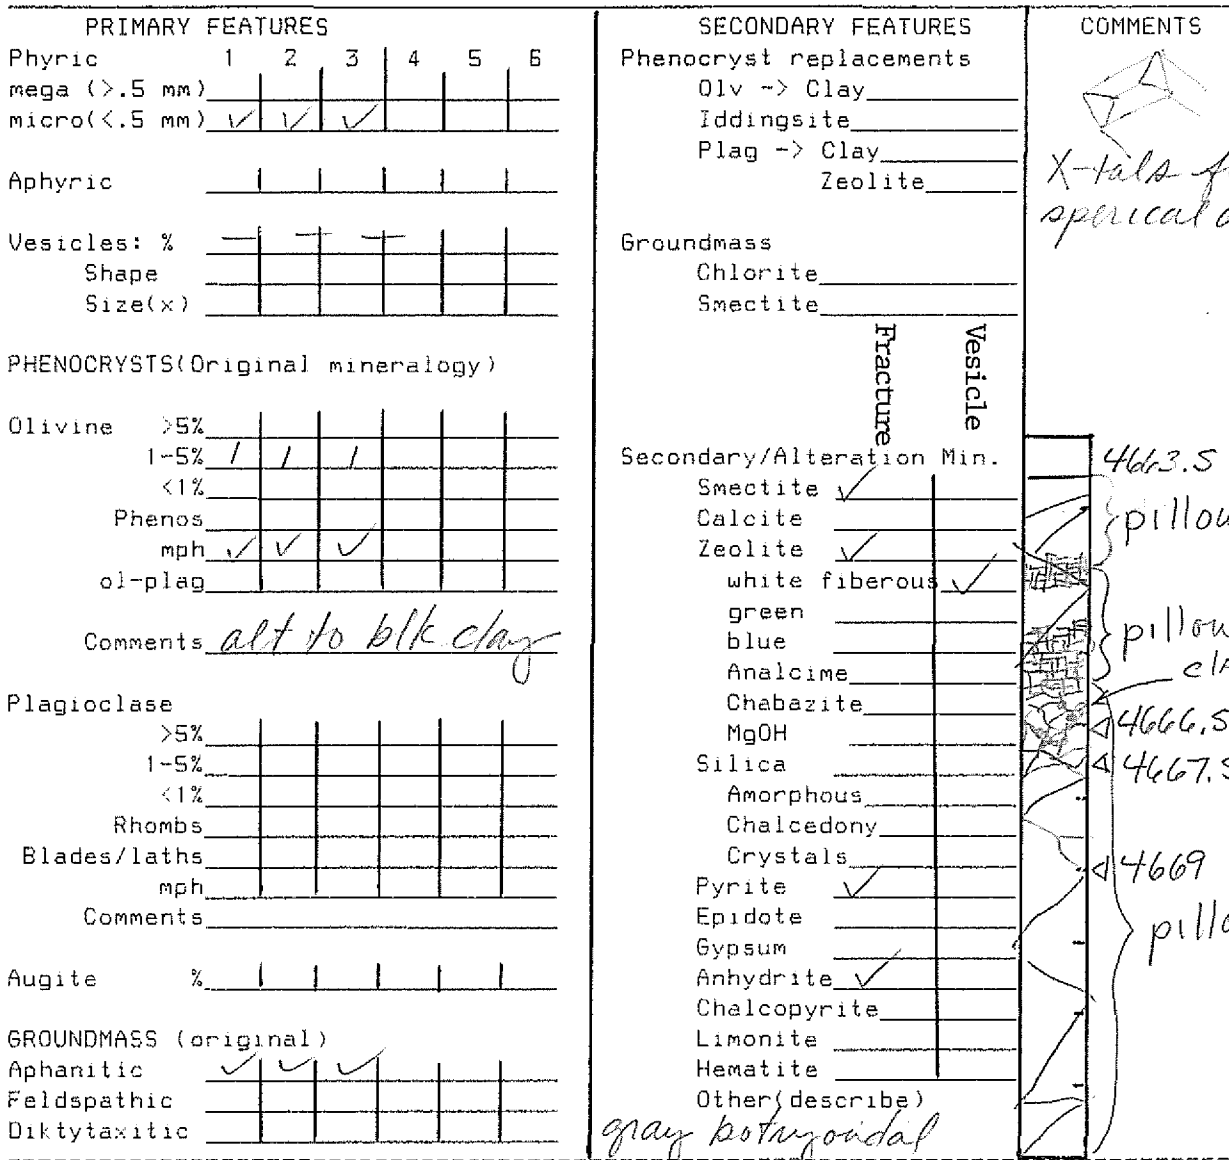 PRIMARY FEATURES
Phyric 1 2 3 4 5 6
mega (>.5 mm)
micro(<.5 mm) ✓ ✓ ✓
Aphyric
Vesicles: % — — —
Shape
Size(x)
PHENOCRYSTS(Original mineralogy)
Olivine >5%
1-5% / / /
<1%
Phenos
mph ✓ ✓ ✓
ol-plag
Comments alt to blk clay
Plagioclase
>5%
1-5%
<1%
Rhombs
Blades/laths
mph
Comments
Augite %
GROUNDMASS (original)
Aphanitic ✓ ✓ ✓
Feldspathic
Diktytaxitic
SECONDARY FEATURES
Phenocryst replacements
Olv -> Clay
Iddingsite
Plag -> Clay
Zeolite
Groundmass
Chlorite
Smectite
Fracture
Vesicle
Secondary/Alteration Min.
Smectite ✓
Calcite
Zeolite ✓
white fiberous ✓
green
blue
Analcime
Chabazite
MgOH
Silica
Amorphous
Chalcedony
Crystals
Pyrite ✓
Epidote
Gypsum
Anhydrite ✓
Chalcopyrite
Limonite
Hematite
Other(describe)
gray botryoidal
COMMENTS
X-tals f
sperical
4663.5
pillow
pillow
cla
4666.5
4667.5
4669
pillo